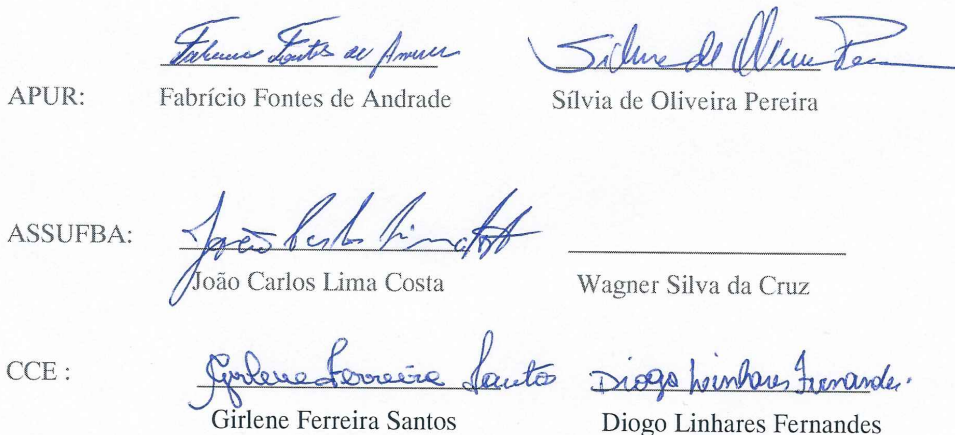 Fabricio Fontes de Andrade Silvia de Oliveira Pereira
APUR: Fabrício Fontes de Andrade Sílvia de Oliveira Pereira
João Carlos Lima Costa
ASSUFBA:
João Carlos Lima Costa Wagner Silva da Cruz
Girlene Ferreira Santos Diogo Linhares Fernandes.
CCE :
Girlene Ferreira Santos Diogo Linhares Fernandes